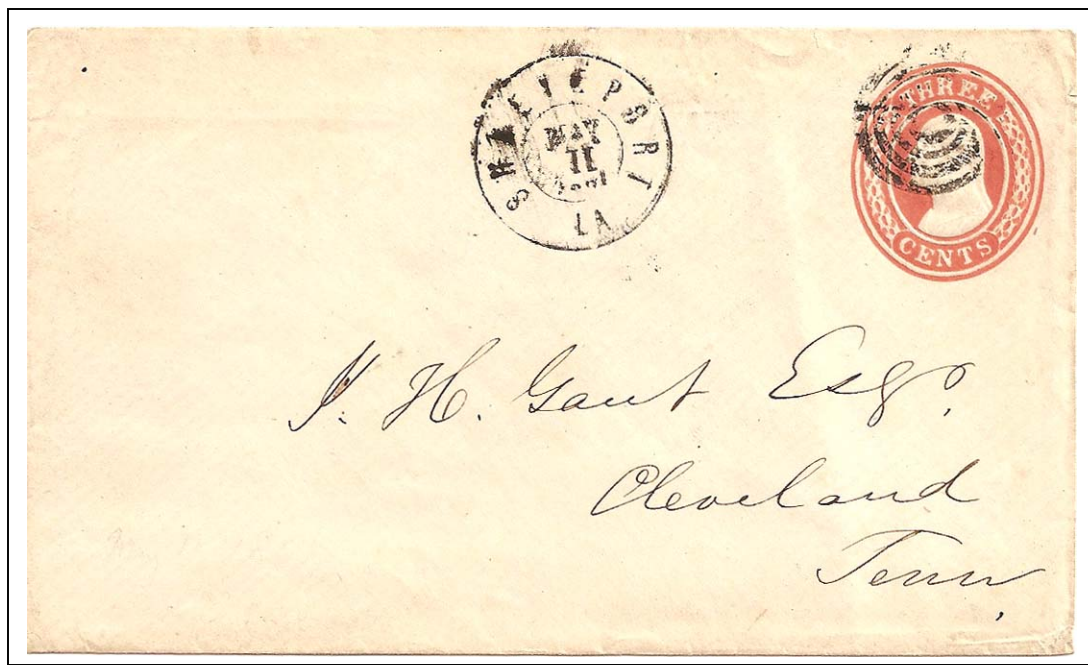 SHREVEPORT
MAY
11
LA
THREE
CENTS
J. H. Gaut Esqr.
Cleveland
Tenn,